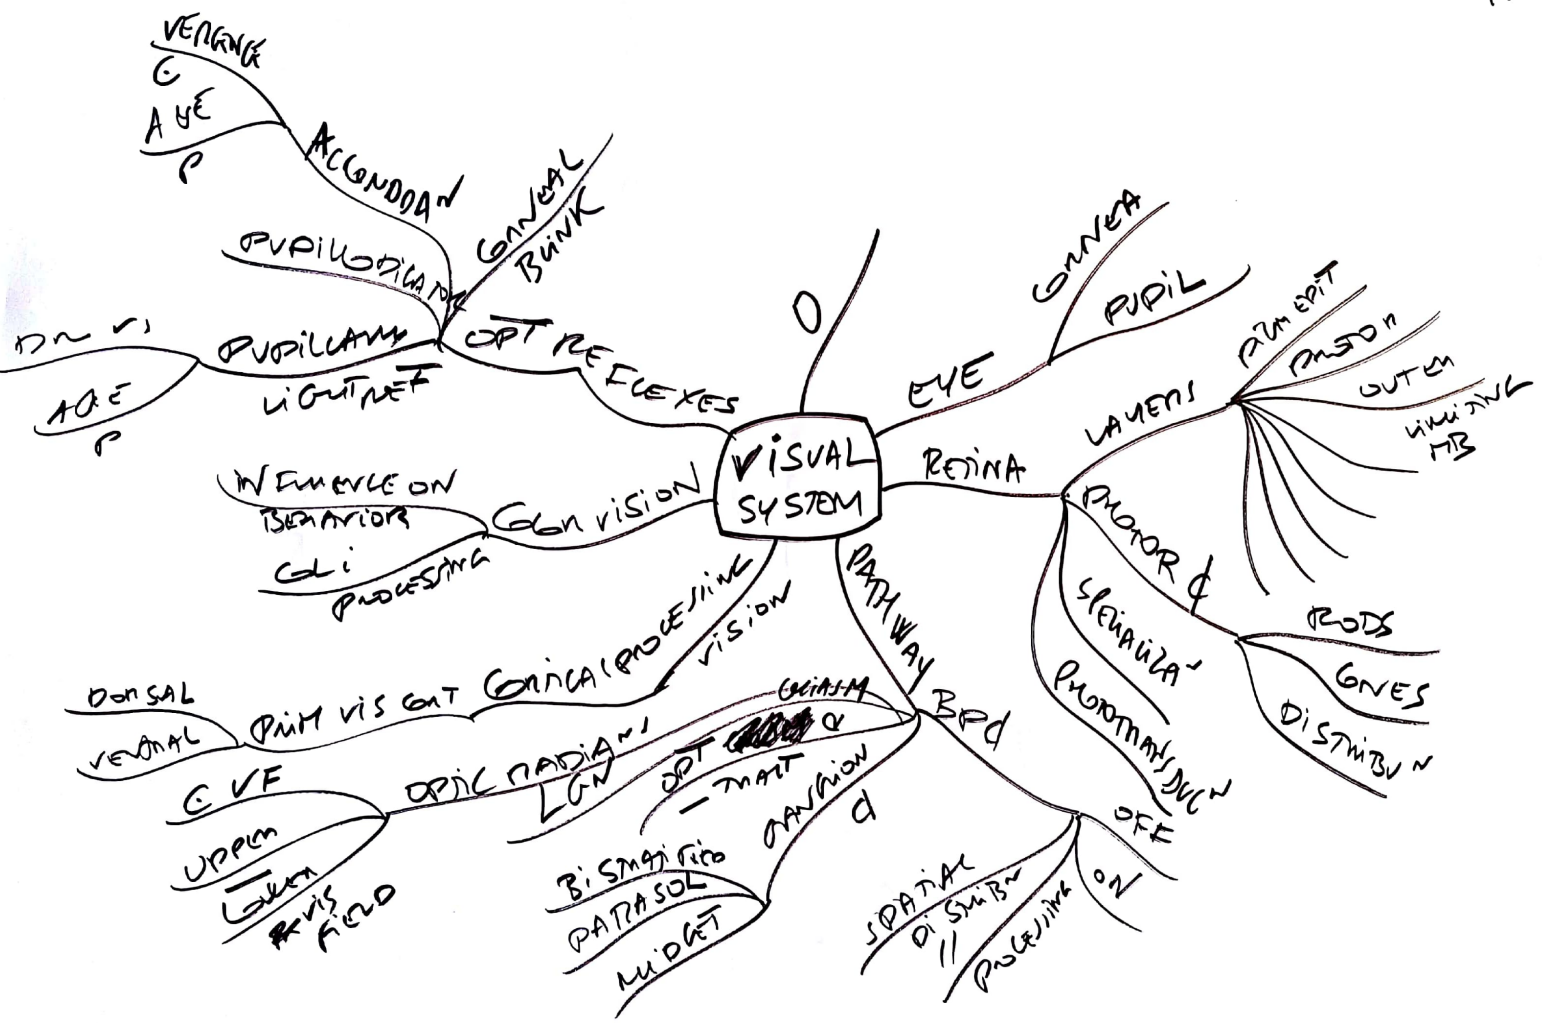 VISUAL
SYSTEM
O
EYE
CORNEA
PUPIL
RETINA
LAYERS
PIGM EPIT
PHOTOR
OUTER
LIMITING
MB
PHOTOR ¢
RODS
CONES
DISTRIBUN
SPECIALIZAN
PHOTOTRANSDUCN
PATHWAY
BP¢
OFF
ON
SPATIAL
DISTRIBN
//
PROCESSING
GANGLION
¢
BISTRATIFIED
PARASOL
MIDGET
OPT
TRACT
CHIASM
LGN
OPTIC RADIANS
C VF
UPPER
LOWER
VIS
FIELD
CORTICAL PROCESSING
VISION
PRIM VIS CORT
DORSAL
VENTRAL
COLOR VISION
INFLUENCE ON
BEHAVIOR
COLI
PROCESSING
OPT REFLEXES
CORNEAL
BLINK
ACCOMODAN
VERGENCE
C
AGE
P
PUPILLODILATOR
PUPILLARY
LIGHT REF
AGE
P